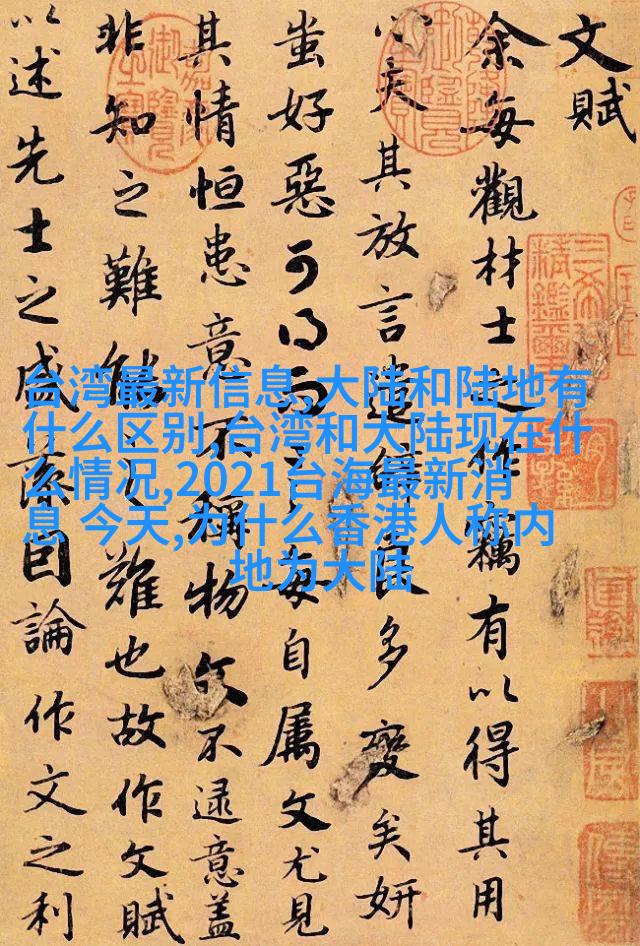 文賦
余每觀材士之作竊有以得其用
心夫其放言遣辭良多變矣妍
蚩好惡可得而言每自属文尤見
其情恒患意不稱物文不逮意盖
非知之難能之難也故作文賦
以述先士之盛藻因論作文之利
台湾最新信息,大陆和陆地有
什么区别,台湾和大陆现在什
么情况,2021台海最新消
息 今天,为什么香港人称内
地为大陆